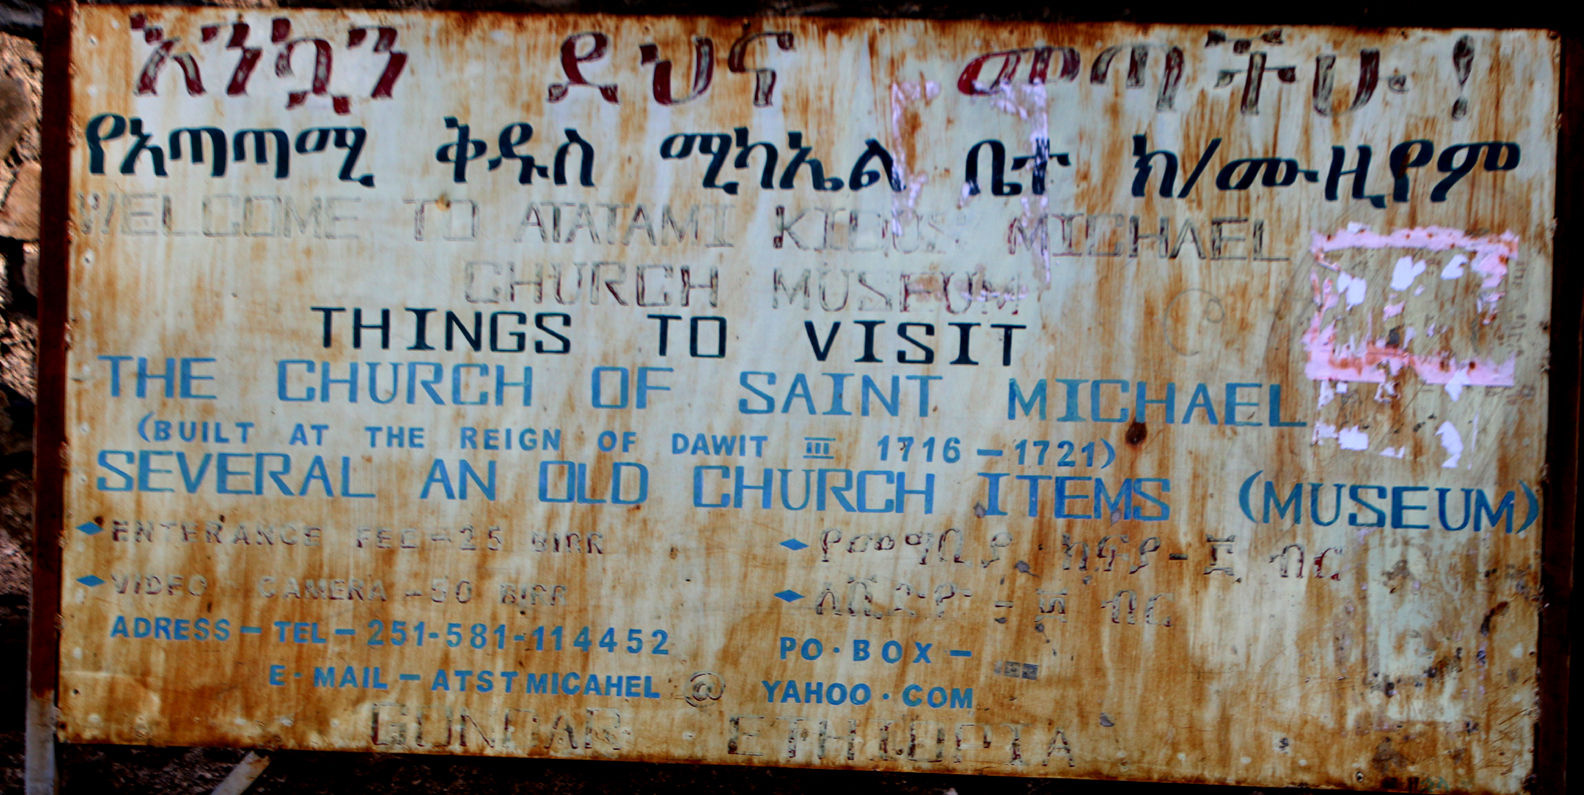 እንኳን ደህና መጣችሁ!
የአጣጣሚ ቅዱስ ሚካኤል ቤተ ክ/ሙዚየም
WELCOME TO ATATAMI KIDUS MICHAEL
CHURCH MUSEUM
THINGS TO VISIT
THE CHURCH OF SAINT MICHAEL
(BUILT AT THE REIGN OF DAWIT III 1716-1721)
SEVERAL AN OLD CHURCH ITEMS (MUSEUM)
ENTHRANCE FEE-25 BIRR
የመግቢያ ክፍያ- ብር
VIDEO CAMERA -50 BIRR
ለቪድዮ - ፶ ብር
ADRESS-TEL-251-581-114452
PO.BOX-
E.MAIL-ATSTMICAHEL @ YAHOO.COM
GUNDAR ETHIOPIA